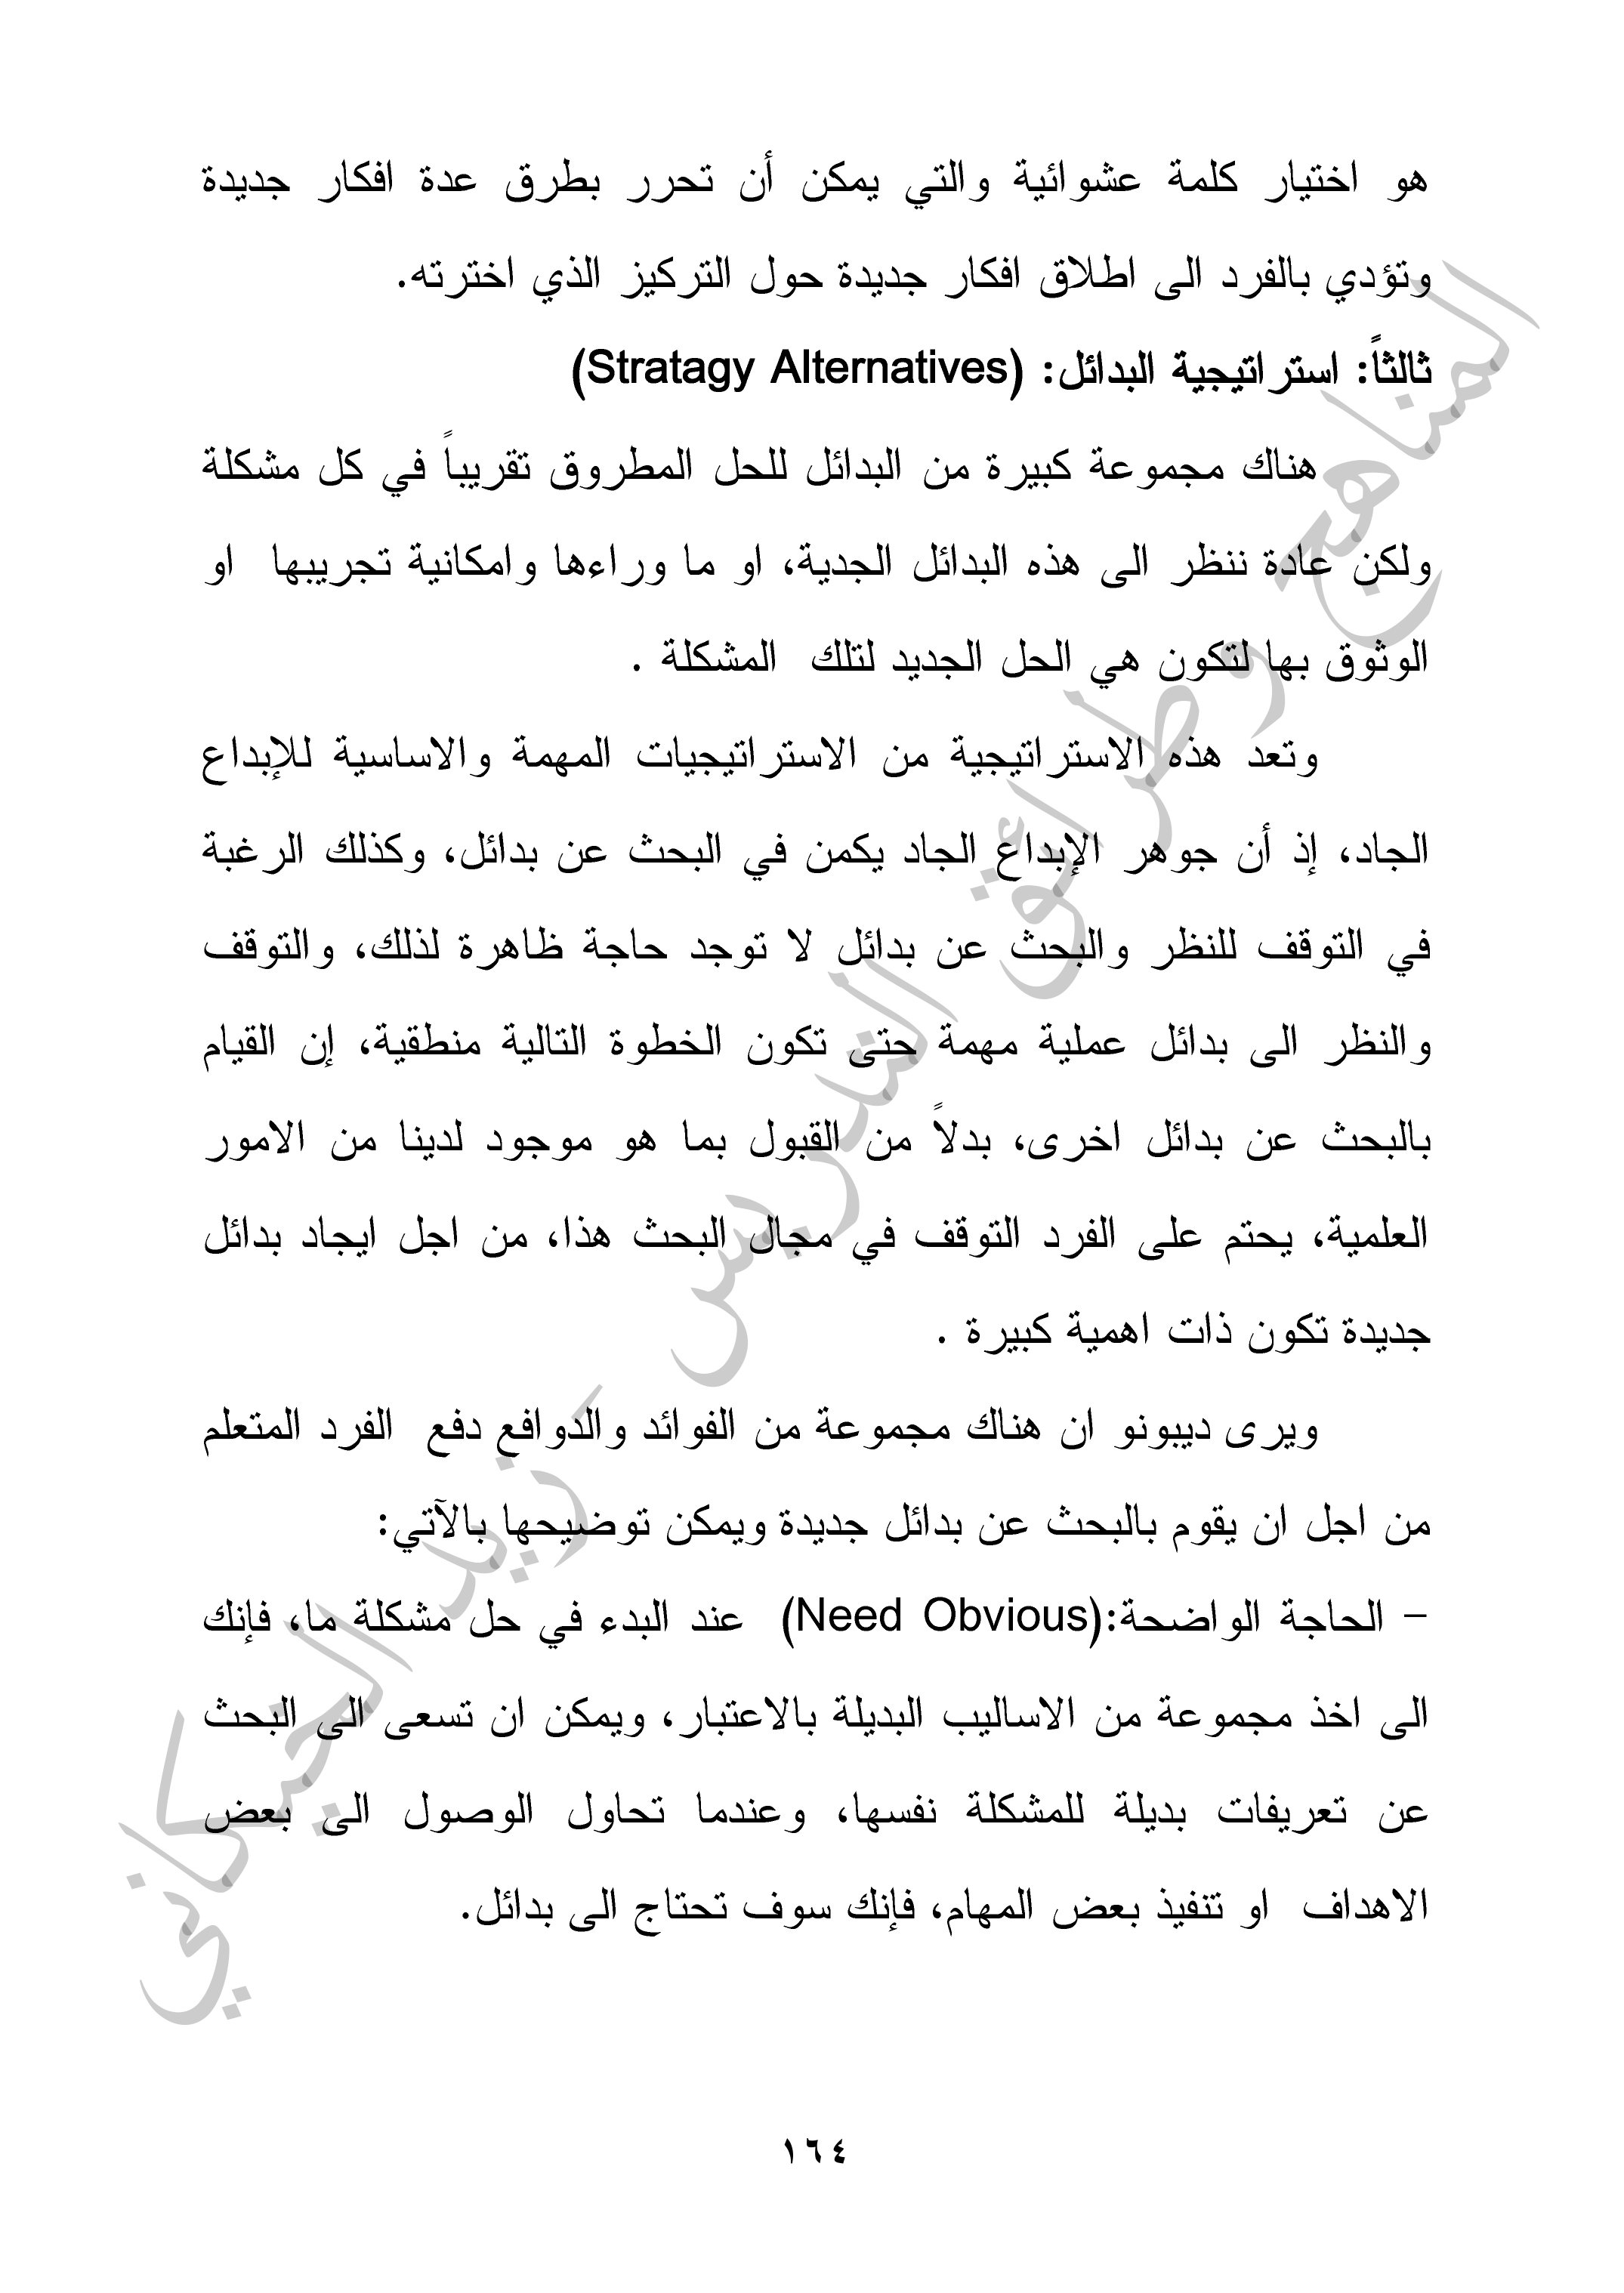 هو اختيار كلمة عشوائية والتي يمكن أن تحرر بطرق عدة افكار جديدة
وتؤدي بالفرد الى اطلاق افكار جديدة حول التركيز الذي اخترته.
ثالثاً: استراتيجية البدائل: (Stratagy Alternatives)
هناك مجموعة كبيرة من البدائل للحل المطروق تقريباً في كل مشكلة
ولكن عادة ننظر الى هذه البدائل الجدية، او ما وراءها وامكانية تجريبها او
الوثوق بها لتكون هي الحل الجديد لتلك المشكلة .
وتعد هذه الاستراتيجية من الاستراتيجيات المهمة والاساسية للإبداع
الجاد، إذ أن جوهر الإبداع الجاد يكمن في البحث عن بدائل، وكذلك الرغبة
في التوقف للنظر والبحث عن بدائل لا توجد حاجة ظاهرة لذلك، والتوقف
والنظر الى بدائل عملية مهمة حتى تكون الخطوة التالية منطقية، إن القيام
بالبحث عن بدائل اخرى، بدلاً من القبول بما هو موجود لدينا من الامور
العلمية، يحتم على الفرد التوقف في مجال البحث هذا، من اجل ايجاد بدائل
جديدة تكون ذات اهمية كبيرة .
ويرى ديبونو ان هناك مجموعة من الفوائد والدوافع دفع الفرد المتعلم
من اجل ان يقوم بالبحث عن بدائل جديدة ويمكن توضيحها بالآتي:
– الحاجة الواضحة:(Need Obvious) عند البدء في حل مشكلة ما، فإنك
الى اخذ مجموعة من الاساليب البديلة بالاعتبار، ويمكن ان تسعى الى البحث
عن تعريفات بديلة للمشكلة نفسها، وعندما تحاول الوصول الى بعض
الاهداف او تنفيذ بعض المهام، فإنك سوف تحتاج الى بدائل.
١٦٤
المناهج وطرائق التدريس - زيد الخيكاني